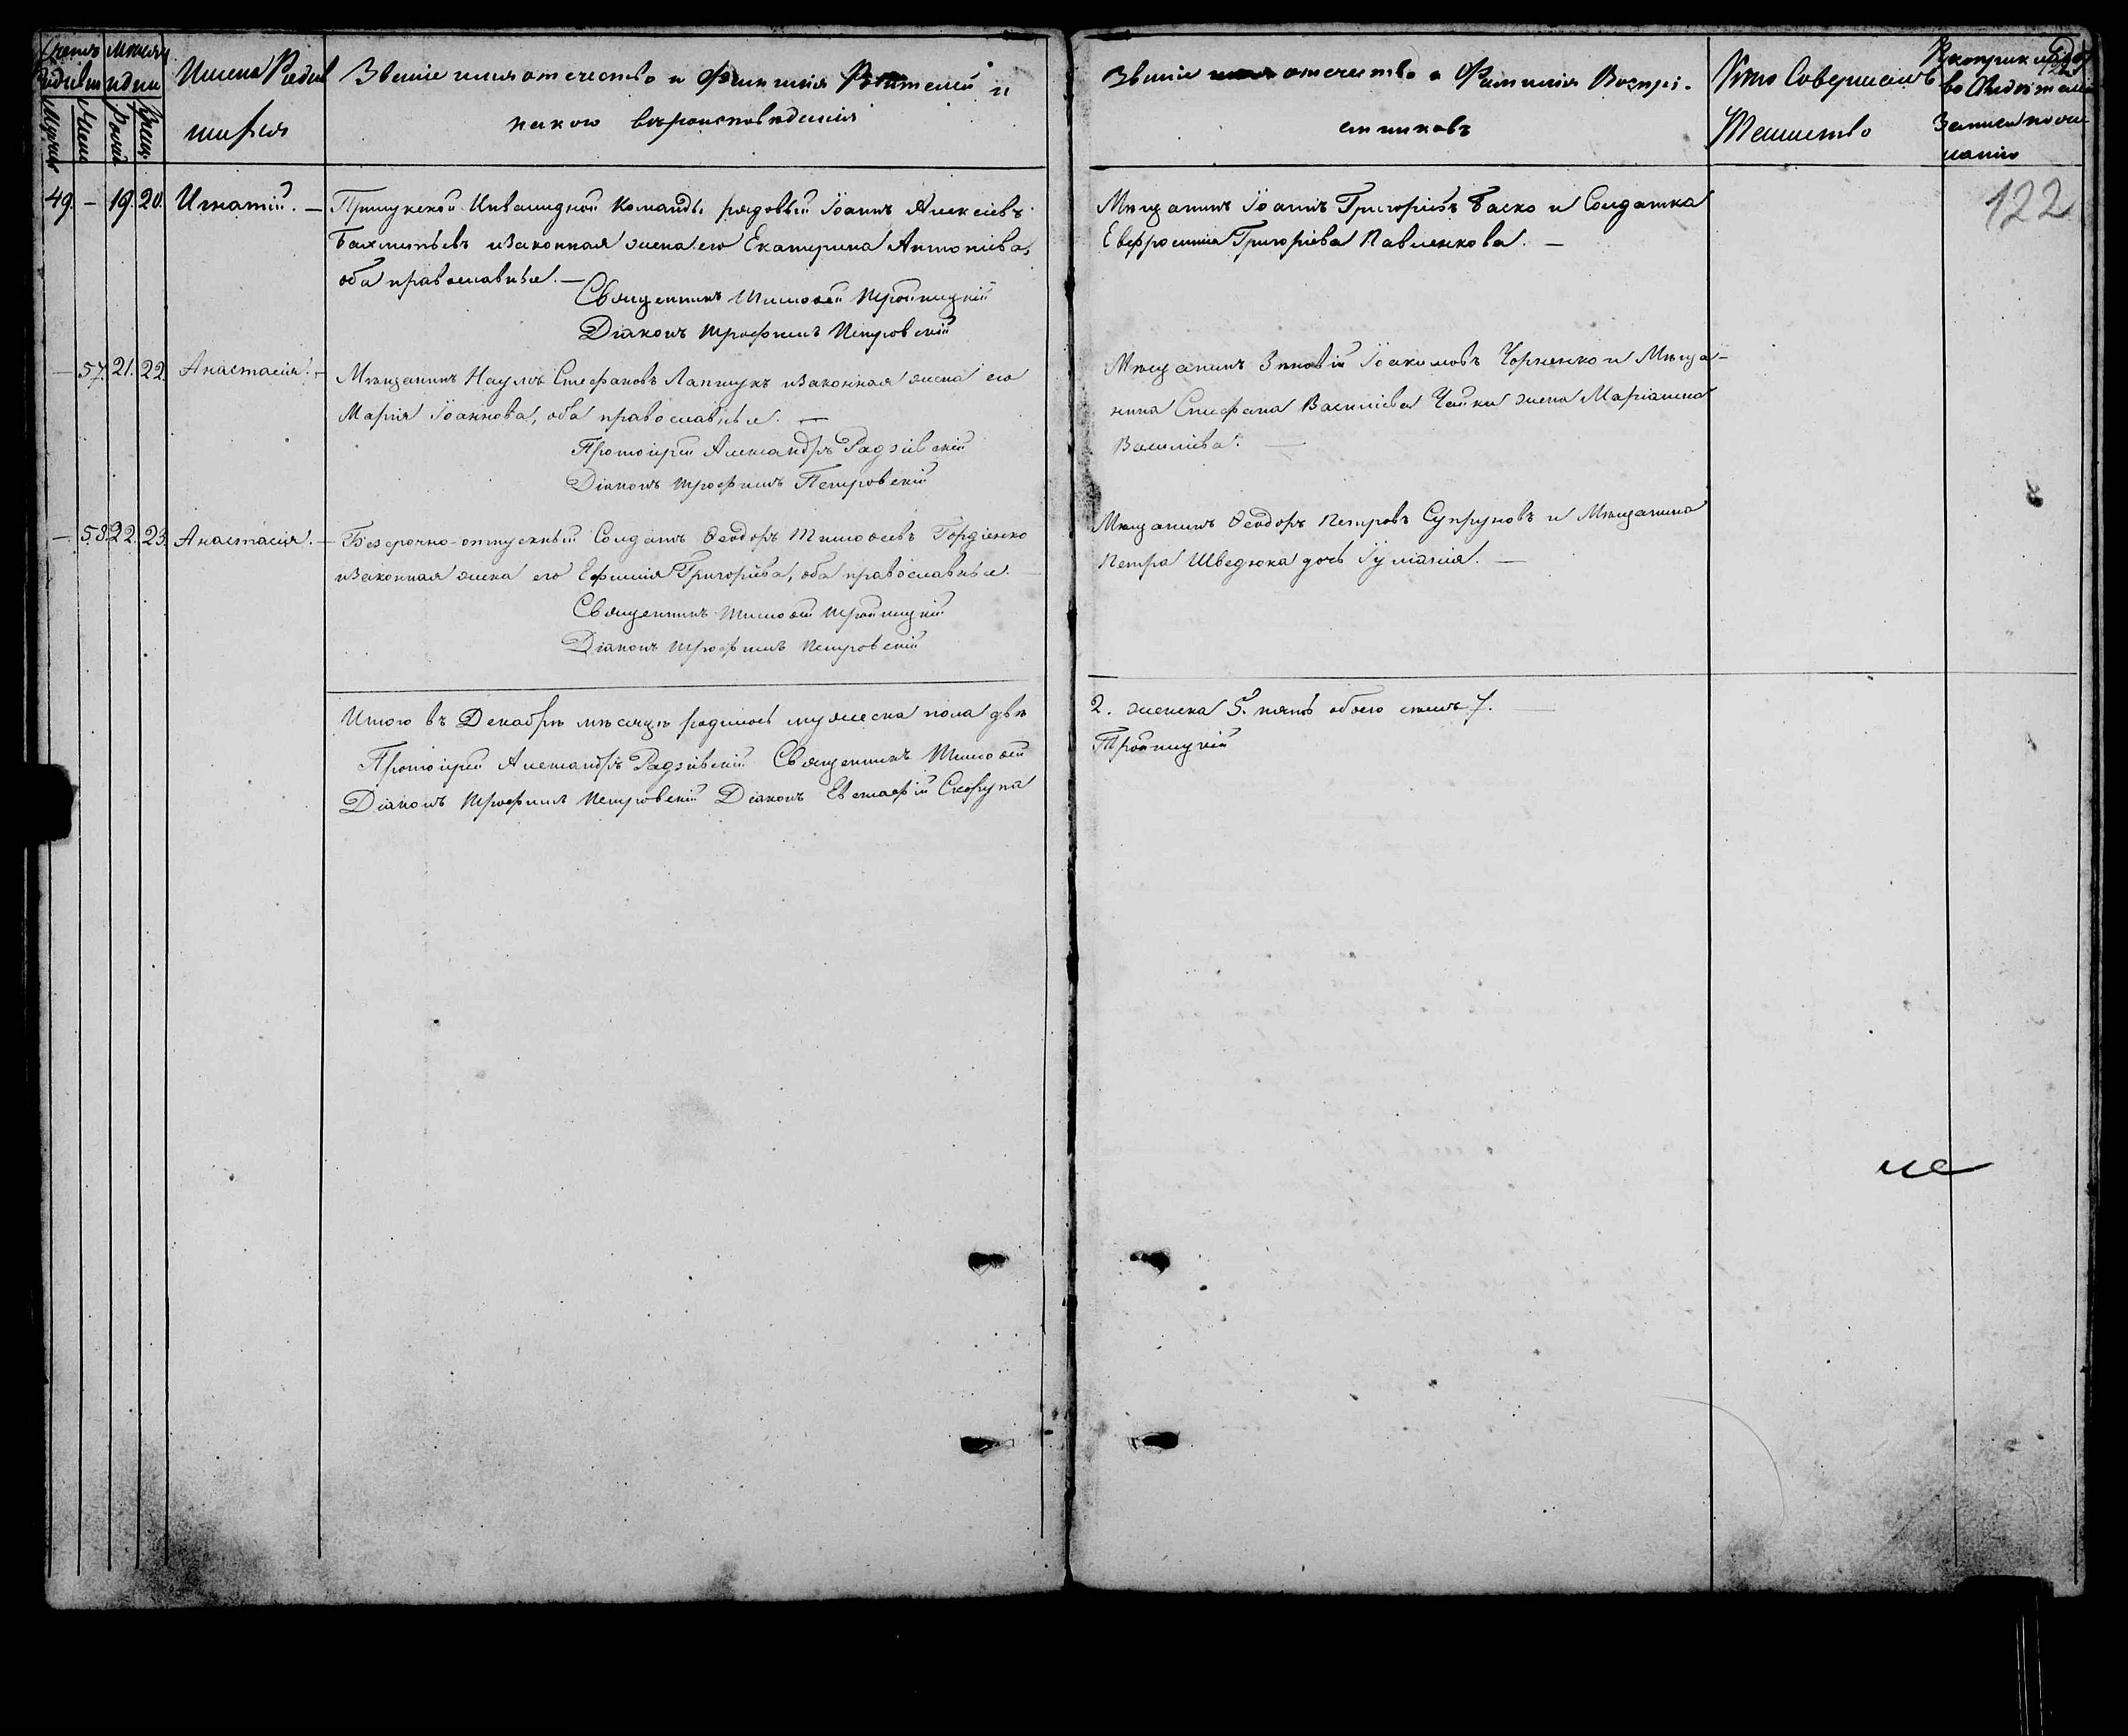 Счетъ
родивш
Мужск
Женс
Месяцъ
и дни
Рожд
Крещ
Имена Родив
шихся
Званіе имя отечество и Фамилія Родителей и
какого вероисповеданія
Званіе имя отечество и Фамилія Воспрі-
емниковъ
Кто Совершалъ
Таинство
Рукоприкладст
во Свидетелей
записи по же
ланію
122
122
49. — 19. 20. Игнатій. —
Прилукской Инвалидной Команды рядовый Іоаннъ Алексіевъ
Бахметьевъ и законная жена его Екатерина Антоніева,
оба православные. —
Священникъ Тимоѳей Тройницкій
Діаконъ Трофимъ Петровскій
Мѣщанинъ Іоаннъ Григоріевъ Баско и Солдатка
Евфросинія Григоріева Павленкова. —
— 57. 21. 22. Анастасія. —
Мѣщанинъ Наумъ Стефановъ Лапшукъ и законная жена его
Марія Іоаннова, оба православные. —
Протоіерей Александръ Радзіевскій
Діаконъ Трофимъ Петровскій
Мѣщанинъ Зиновій Іоакимовъ Чорненко и Мѣща-
нина Стефана Василіева Чайки жена Маріамна
Василіева. —
— 58. 22. 23. Анастасія. —
Безсрочно-отпускный Солдатъ Ѳеодоръ Тимоѳеевъ Гордіенко
и законная жена его Ефимія Григоріева, оба православные. —
Священникъ Тимоѳей Тройницкій
Діаконъ Трофимъ Петровскій
Мѣщанинъ Ѳеодоръ Петровъ Супруновъ и Мѣщанина
Петра Шведюка дочь Іуліанія. —
Итого въ Декабрѣ мѣсяцѣ родилось мужеска пола два
2. женска 5. пять обоего семь 7. —
Протоіерей Александръ Радзіевскій Священникъ Тимоѳей
Тройницкій
Діаконъ Трофимъ Петровскій Діаконъ Евстафій Скорупа